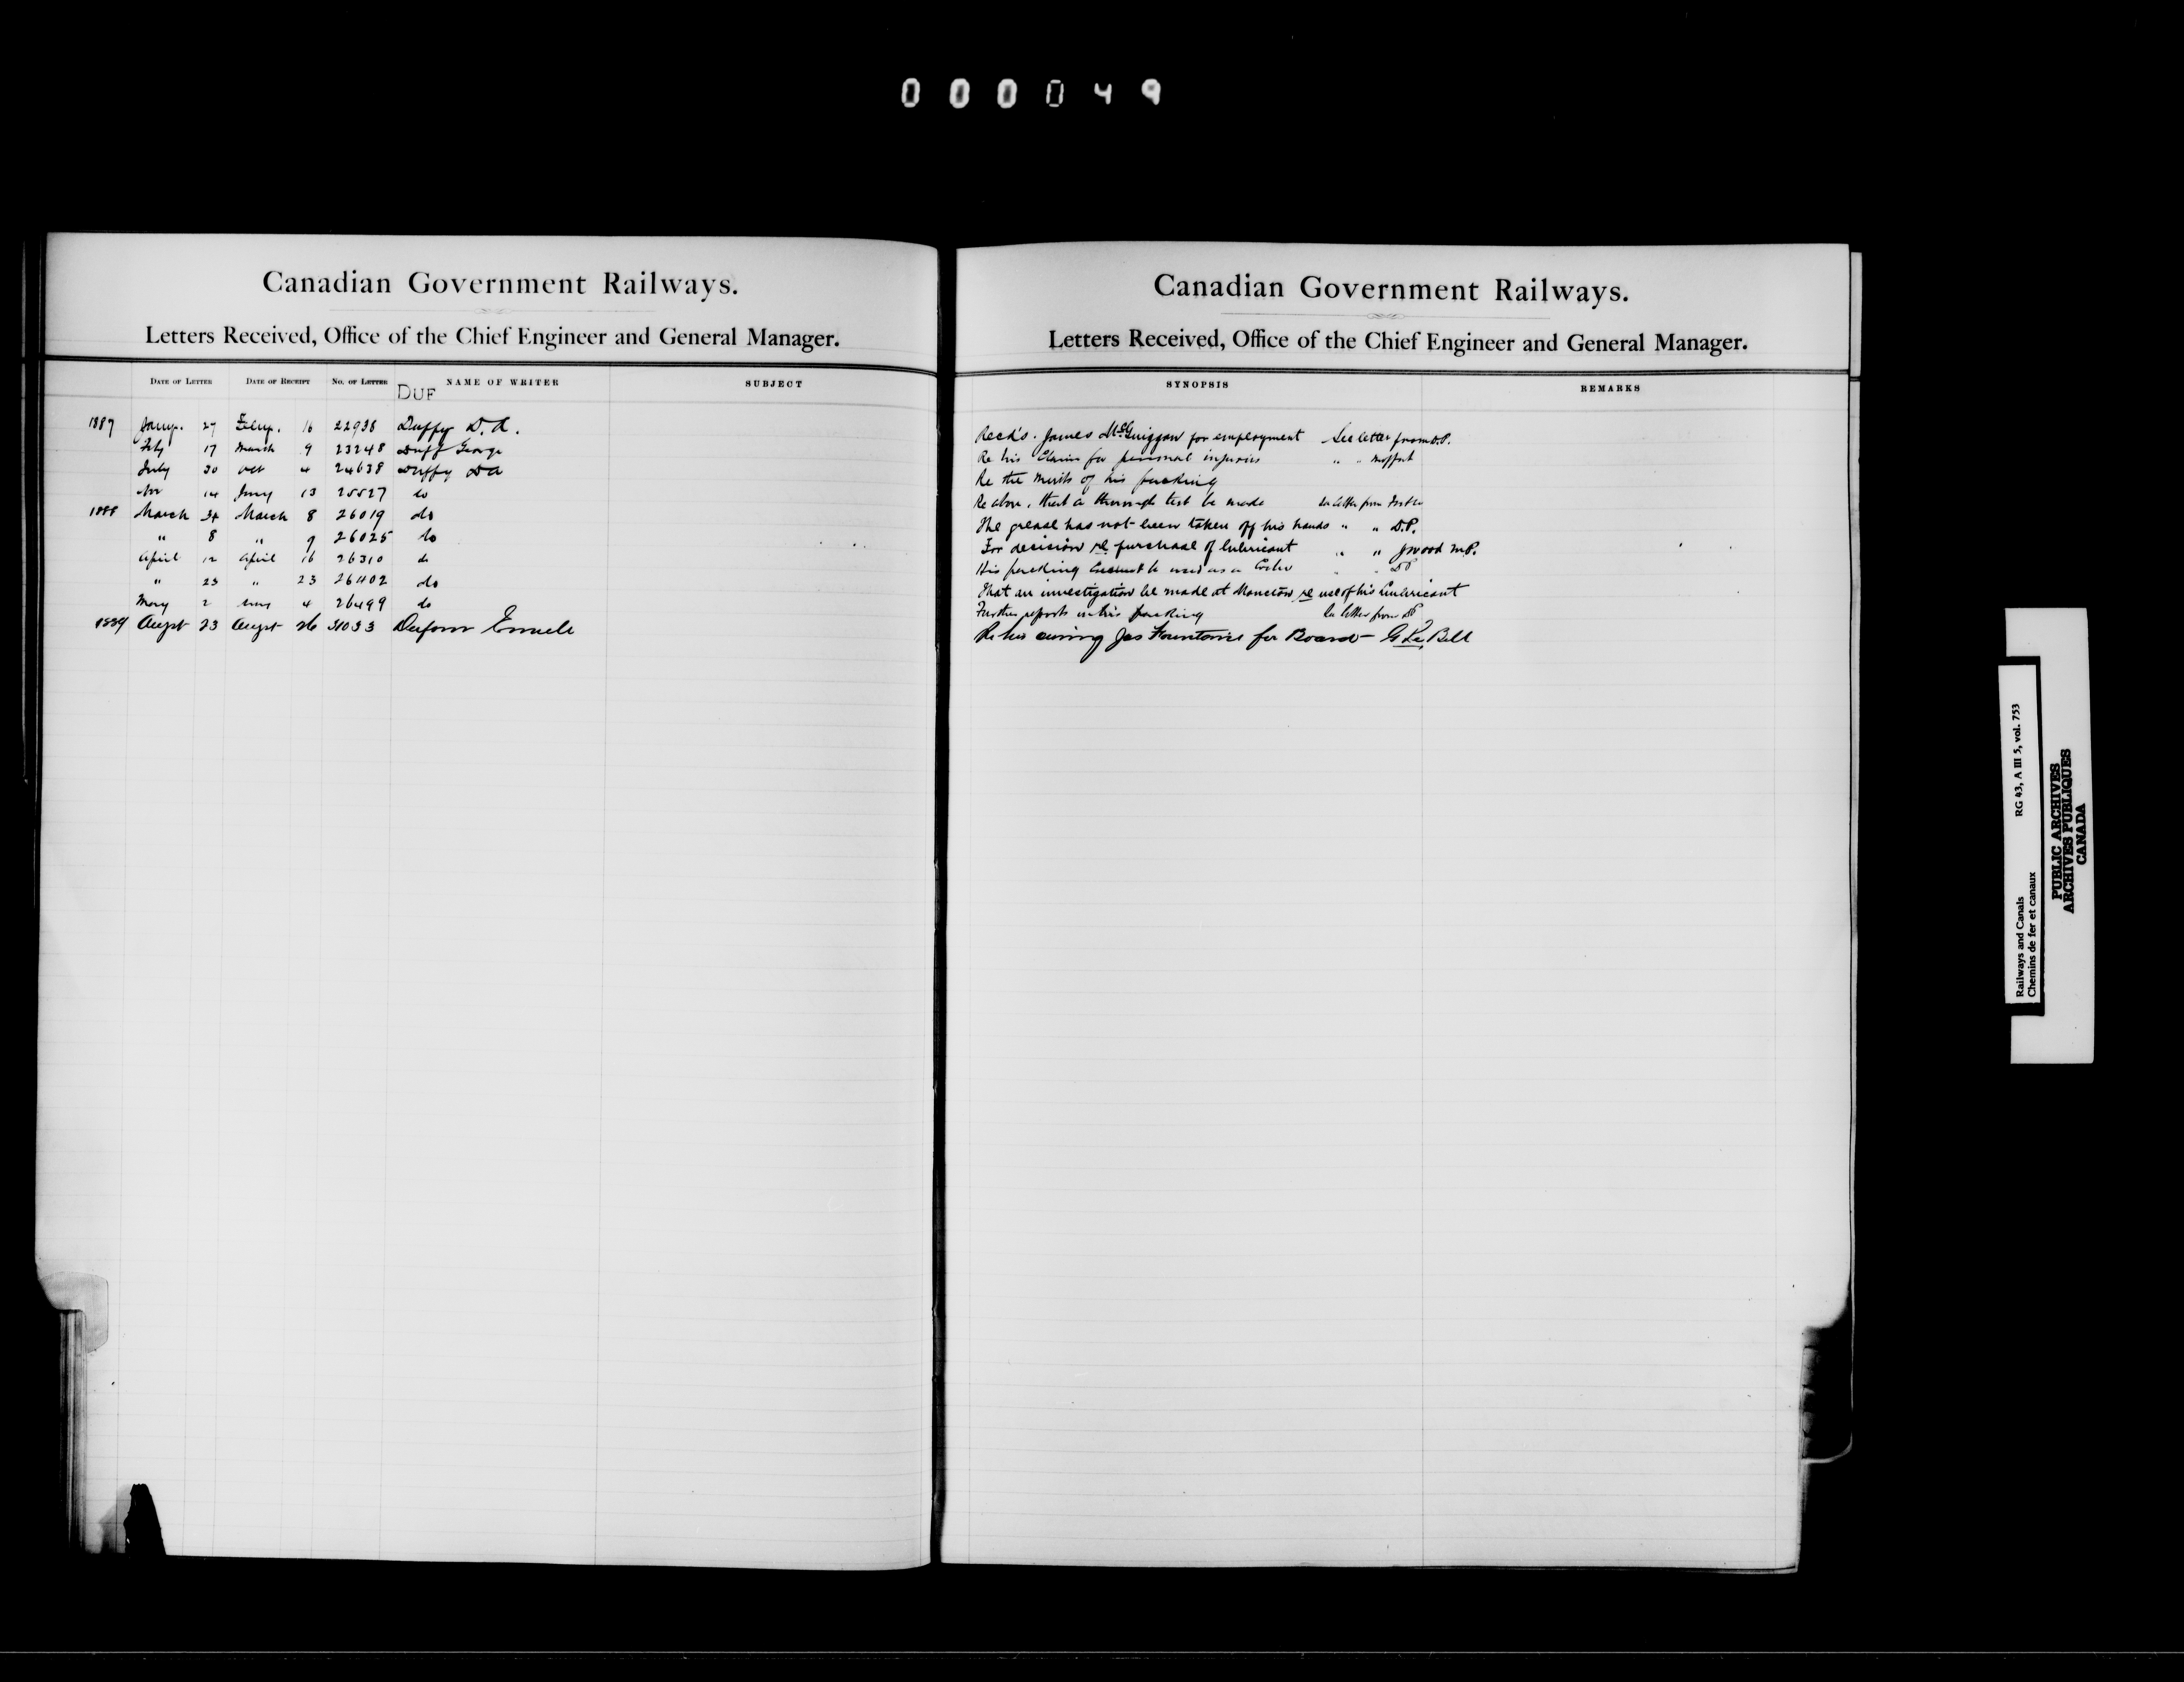 000049
Canadian Government Railways.
Letters Received, Office of the Chief Engineer and General Manager.
DATE OF LETTER DATE OF RECEIPT No. OF LETTER NAME OF WRITER SUBJECT
DUF
1887 Jany. 27 Feby. 16 22938 Duffy D. A.
Feby 17 March 9 23248 Duff George
July 30 Oct 4 24638 Duffy DA
14 Jany 13 25527 do
1888 March March 8 26019 do
" 8 " 9 26025 do
April 12 April 16 26310 do
" 23 " 23 26402 do
May 2 4 26499 do
1889 Augst 23 Augst 26 31033
Canadian Government Railways.
Letters Received, Office of the Chief Engineer and General Manager.
SYNOPSIS REMARKS
Reck's. James McGuiggan for employment See letter from D.P.
Re his Claim for personal injuries " " Moffat
Re the merits of his packing
Re above, that a thorough test be made See letter from
The grease has not been taken off his hands " " D.P.
For decision re purchase of lubricant " " J Wood M.P.
His packing be used as a
That an investigation be made at Moncton re use of his Lubricant
Further reports on his packing See letter from DP
Re his owing Jas for Board Bell
Railways and Canals RG 43, A III 5, vol. 753
Chemins de fer et canaux
PUBLIC ARCHIVES
ARCHIVES PUBLIQUES
CANADA